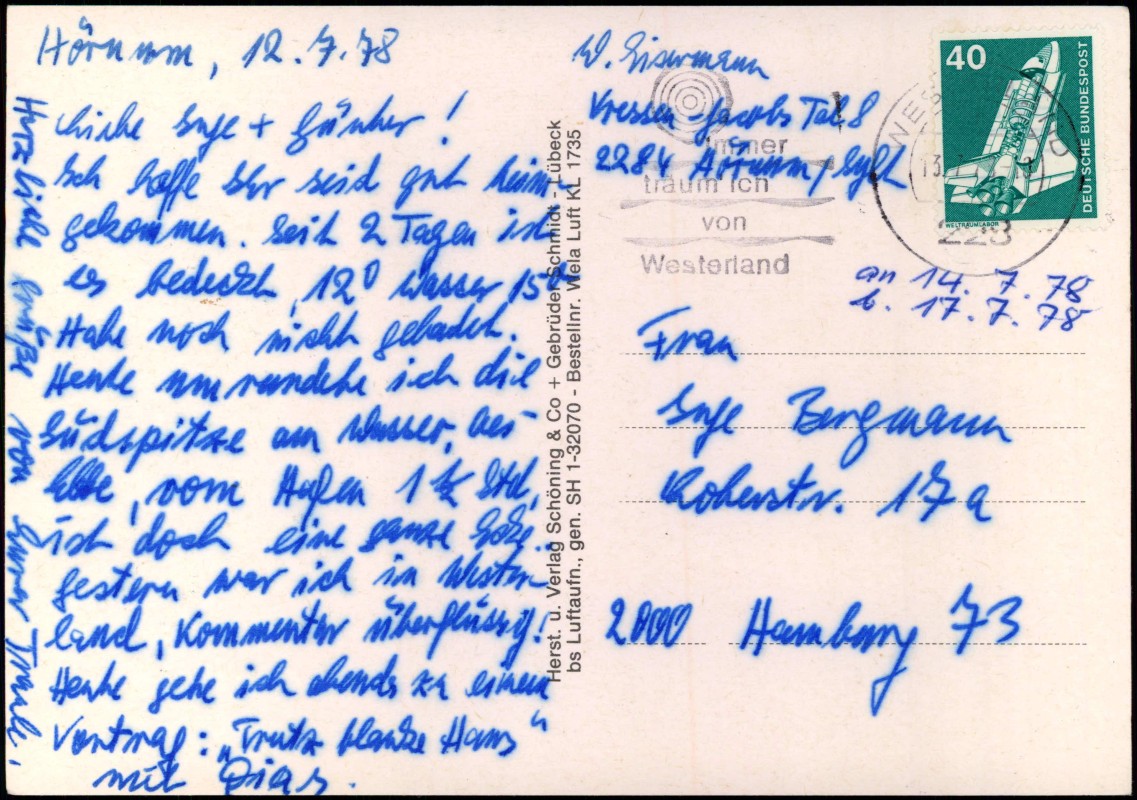 Hörnum, 12.7.78
Liebe Inge + Günther!
Ich hoffe Ihr seid gut heim-
gekommen. Seit 2 Tagen ist
es bedeckt, 12° Wasser 15°
Habe noch nicht gebadet.
Heute umrundete ich die
Südspitze am Wasser, bei
Ebbe, vom Hafen 1 ½ Std,
ist doch eine ganze Ecke.
gestern war ich in Wester-
land, Kommentar überflüssig!
Heute gehe ich abends zu einem
Vortrag: „Trutz blanke Hans"
mit Dias.
Herzliche Grüße von Eurer Traute.
Herst. u. Verlag Schöning & Co + Gebrüder Schmidt - Lübeck
bs Luftaufn., gen. SH 1-32070 - Bestellnr. Wela Luft KL 1735
W. Eisermann
Kressen-Jacobs Tal 8
2284 Hörnum / Sylt
immer
träum ich
von
Westerland
WESTERLAND
13.
223
40
DEUTSCHE BUNDESPOST
WELTRAUMLABOR
an 14. 7. 78
b. 17. 7. 78
Frau
Inge Bergmann
17 a
2000 Hamburg 73